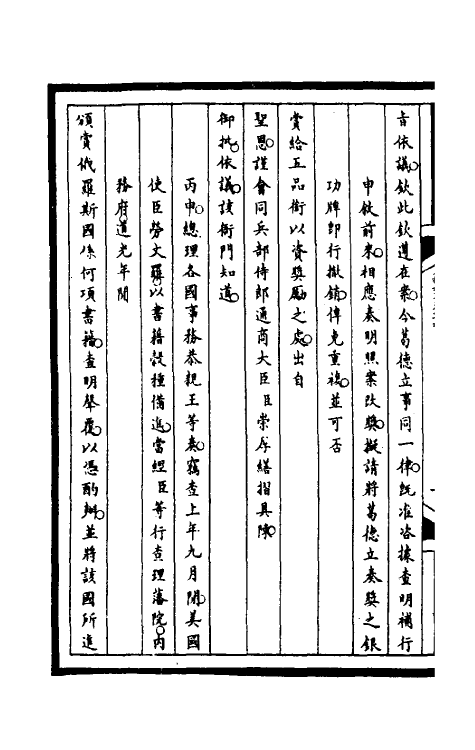 旨依議。欽此欽遵在案。今葛德立事同一律。既准咨據查明補行
申飲前來。相應奏明照案改獎。擬請將葛德立奏獎之銀
功牌即行撤銷。俾免重複。並可否
賞給五品銜以資獎勵之處。出自
聖恩。謹會同兵部侍郎通商大臣臣崇厚繕摺具陳。
御批。依議。該衙門知道。
丙申。總理各國事務恭親王等奏。竊查上年九月間。美國
使臣勞文羅。以書籍穀種備進。當經臣等行查理藩院。內
務府。道光年間
頒賞俄羅斯國係何項書籍。查明聲覆。以憑酌辦。並將該國所進